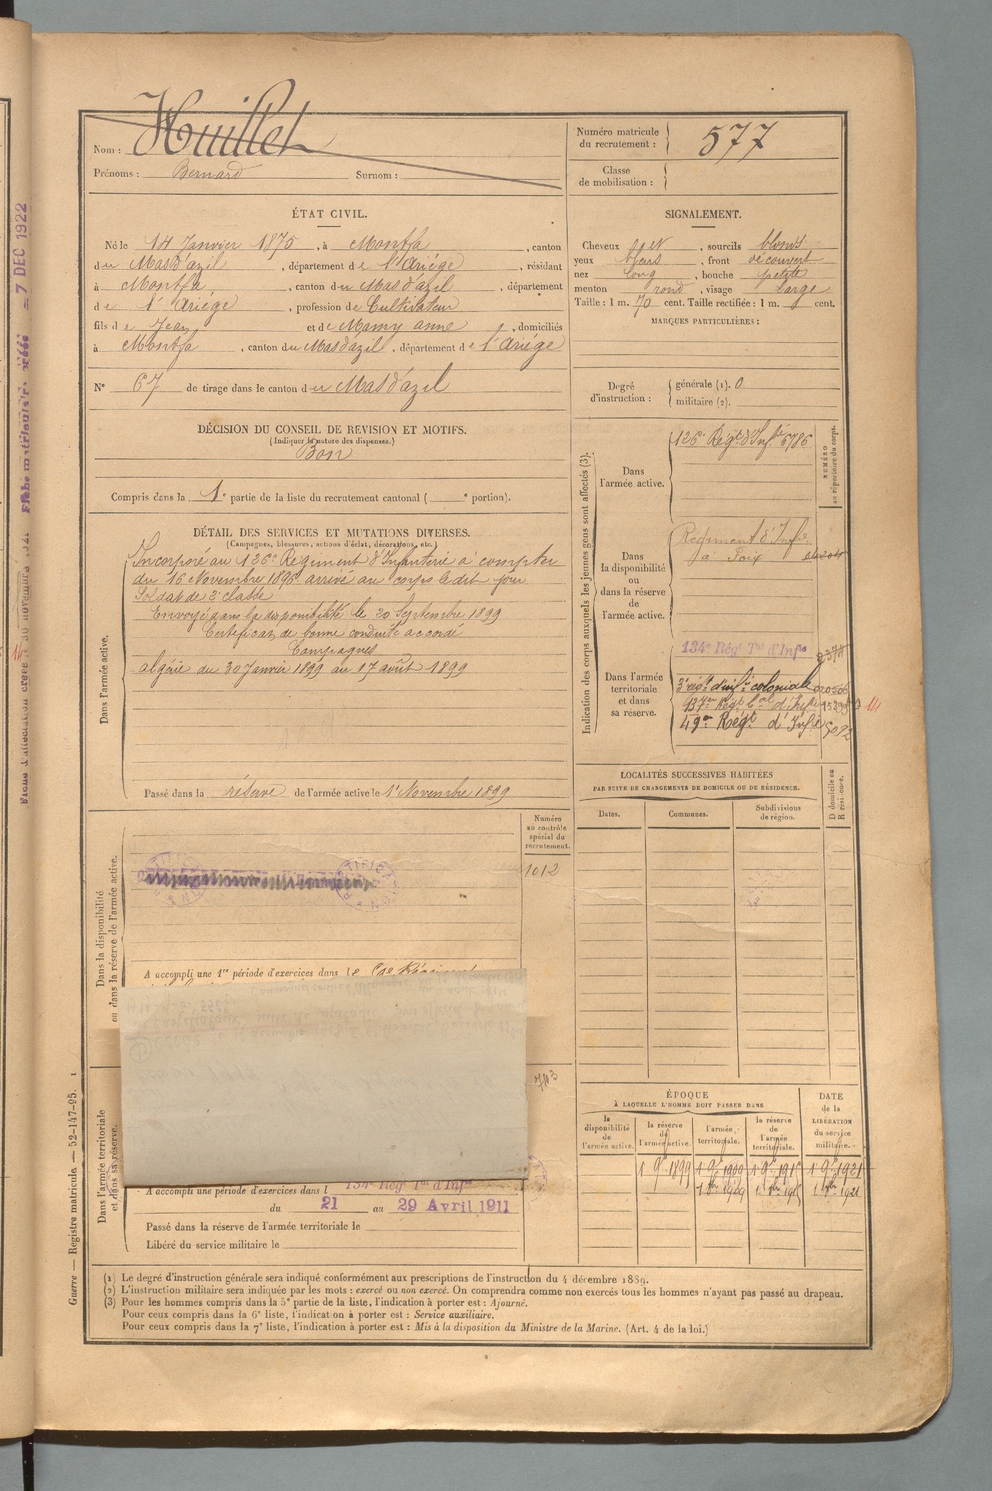 Nom : Huillet
Prénoms : Bernard Surnom :
Numéro matricule du recrutement : 577
Classe de mobilisation :
ÉTAT CIVIL.
Né le 14 Janvier 1875, à Montfa, canton
du Mas d'azil, département de l'Ariège, résidant
à Montfa, canton du Mas d'azil, département
de l'Ariège, profession de Cultivateur
fils de Jean et de Mamy anne, domiciliés
à Montfa, canton du Mas d'azil, département de l'Ariège
N° 67 de tirage dans le canton du Mas d'azil
SIGNALEMENT.
Cheveux et, sourcils blonds
yeux bleus, front découvert
nez long, bouche petite
menton rond, visage large
Taille : 1 m. 70 cent. Taille rectifiée : 1 m. cent.
MARQUES PARTICULIÈRES :
Degré d'instruction : générale (1). 0
militaire (2).
DÉCISION DU CONSEIL DE REVISION ET MOTIFS.
(Indiquer la nature des dispenses.)
Bon
Compris dans la 1e partie de la liste du recrutement cantonal ( e portion).
DÉTAIL DES SERVICES ET MUTATIONS DIVERSES.
(Campagnes, blessures, actions d'éclat, décorations, etc.)
Dans l'armée active.
Incorporé au 126e Régiment d'Infanterie à compter
du 16 Novembre 1896, arrivé au corps le dit jour
Soldat de 2e classe
Envoyé dans la disponibilité le 20 Septembre 1899
Certificat de bonne conduite accordé
Campagnes
algérie du 30 Janvier 1899 au 17 août 1899
Passé dans la réserve de l'armée active le 1er Novembre 1899
Indication des corps auxquels les jeunes gens sont affectés (3).
NUMÉRO au répertoire du corps.
Dans l'armée active.
126e Régt d'Infie 5786
Dans la disponibilité ou dans la réserve de l'armée active.
Régiment d'Infie
à Foix
Dans l'armée territoriale et dans sa réserve.
134e Régt Tal d'Infie
3e régt d'infie coloniale
137e Régt d'Infie
49e Régt d'Infie 5092
LOCALITÉS SUCCESSIVES HABITÉES
PAR SUITE DE CHANGEMENTS DE DOMICILE OU DE RÉSIDENCE.
Dates. Communes. Subdivisions de région. D domicile ou R résidence.
Dans la disponibilité ou dans la réserve de l'armée active.
Numéro au contrôle spécial du recrutement.
1012
A accompli une 1re période d'exercices dans le
743
Dans l'armée territoriale et dans sa réserve.
A accompli une période d'exercices dans l 134e Régt Tal d'Infie
du 21 au 29 Avril 1911
Passé dans la réserve de l'armée territoriale le
Libéré du service militaire le
ÉPOQUE
À LAQUELLE L'HOMME DOIT PASSER DANS
la disponibilité de l'armée active.
la réserve de l'armée active.
l'armée territoriale.
la réserve de l'armée territoriale.
DATE de la LIBÉRATION du service militaire.
1 9bre 1899 1 9bre 1909 1 9bre 1915 1 9bre 1921
(1) Le degré d'instruction générale sera indiqué conformément aux prescriptions de l'instruction du 4 décembre 1889.
(2) L'instruction militaire sera indiquée par les mots : exercé ou non exercé. On comprendra comme non exercés tous les hommes n'ayant pas passé au drapeau.
(3) Pour les hommes compris dans la 5e partie de la liste, l'indication à porter est : Ajourné.
Pour ceux compris dans la 6e liste, l'indication à porter est : Service auxiliaire.
Pour ceux compris dans la 7e liste, l'indication à porter est : Mis à la disposition du Ministre de la Marine. (Art. 4 de la loi.)
Guerre — Registre matricule. — 52-147-95.
7 DEC 1922